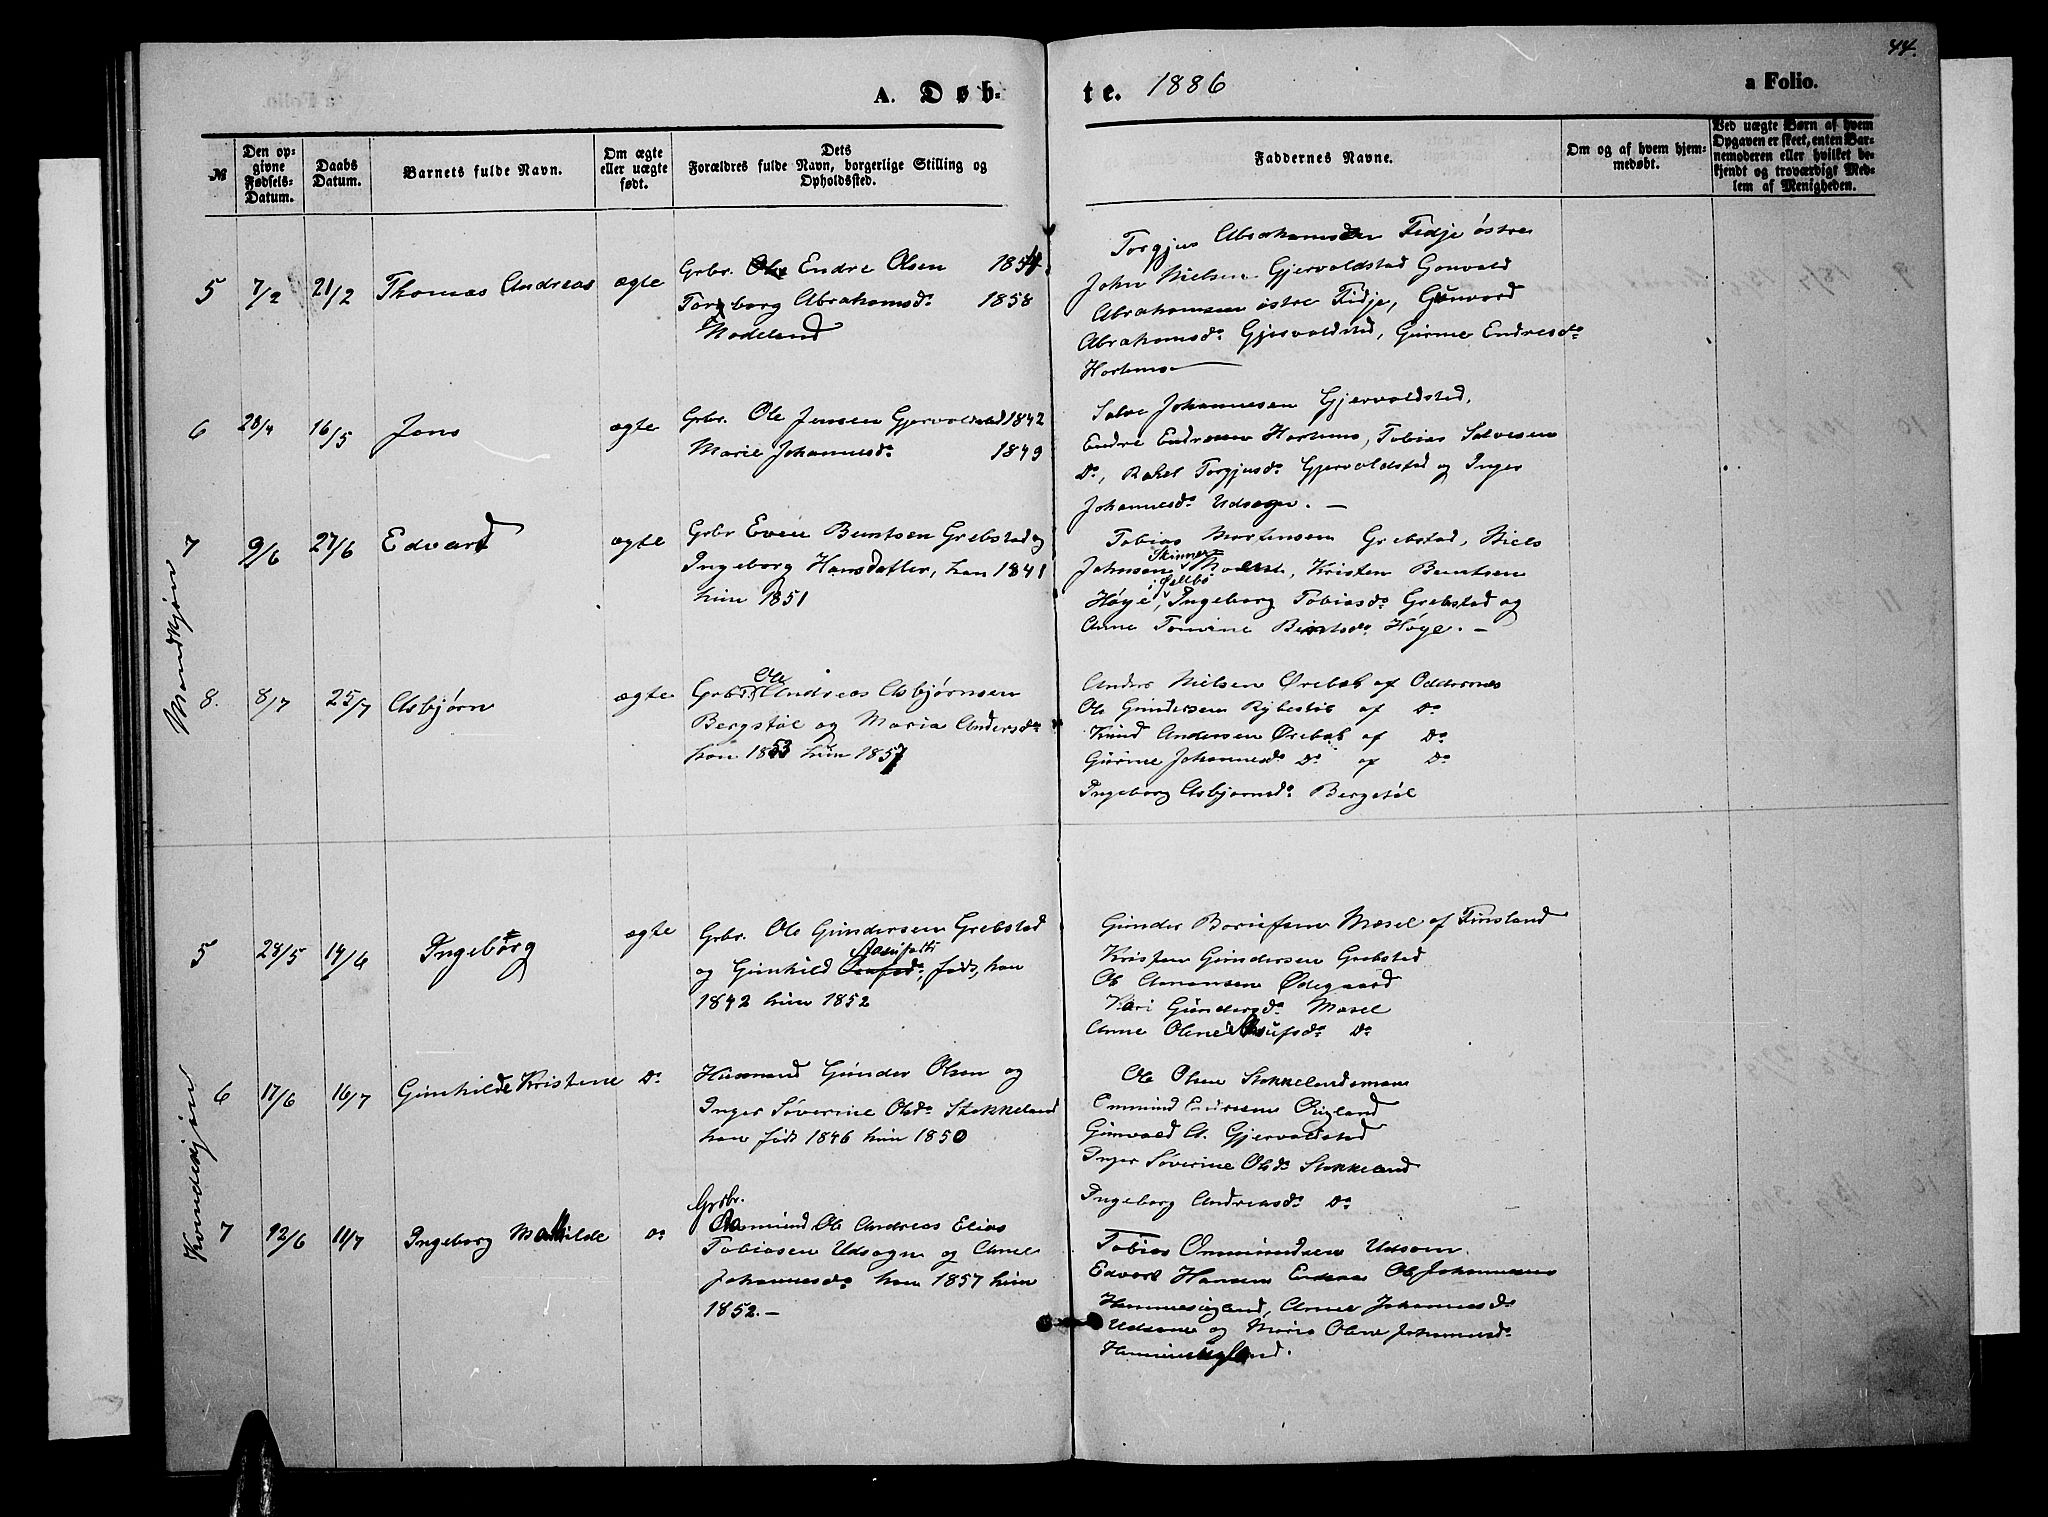 44.
A. Døb-
te. 1886
a Folio.
№
Den op-
givne
Fødsels-
Datum.
Daabs
Datum.
Barnets fulde Navn.
Om ægte
eller uægte
født.
Dets
Forældres fulde Navn, borgerlige Stilling og
Opholdssted.
Faddernes Navne.
Om og af hvem hjem-
medøbt.
Ved uægte Børn af hvem
Opgaven er skeet, enten Bar-
nemoderen eller hvilket be-
kjendt og troværdigt Med-
lem af Menigheden.
Mandkjøn
5 7/2 21/2 Thomas Andreas ægte
Grbr. Endre Olsen 1854
Torborg Abrahamsd. 1858
Modeland
Torgjus Abrahamsen Fidje østre
John Nielsen Gjervoldstad Gonvald
Abrahamsen østre Fidje, Gunvord
Abrahamsd. Gjervoldstad, Gurine Endresd.
Hortemo
6 28/4 16/5 Jens ægte
Grbr. Ole Jensen Gjervoldstad 1842
Marie Johannesd. 1849
Salve Johannesen Gjervoldstad,
Endre Endresen Hortemo, Tobias Salvesen
Do, Rakel Torgjusd. Gjervoldstad og Inger
Johannesd. Udsogn. —
7 9/6 27/6 Edvard ægte
Grbr Even Berntsen Grebstad og
Ingeborg Hansdatter, han 1841
hun 1851
Tobias Mortensen Grebstad, Niels
Johnsen Skinner= Moen, Kristen Berntsen
Høye i Øllebø, Ingeborg Tobiasd. Grebstad og
Anne Tomine Berntsd. Høye. —
8. 8/7 25/7 Asbjørn ægte
Grbr. Ole Andreas Asbjørnsen
Bergstøl og Maria Andersd.
han 1853 hun 1857
Anders Nielsen Ørebæk af Oddernes
Ole Gundersen Rybestøl af Do
Knud Andersen Ørebæk af Do
Gurine Johannesd. Do af Do
Ingeborg Asbjørnsd. Bergstøl
Kvindekjøn
5 28/5 14/6 Ingeborg ægte
Grbr. Ole Gundersen Grebstad
og Gunhild født, han
1842 hun 1852
Gunder Mosel af Finsland
Kristen Gundersen Grebstad
Ole Amensen Ødegaard
Kari Gundersd. Mosel
Anne Oline Do
6 17/6 16/7 Gunhilde Kristine Do
Husmand Gunder Olsen og
Inger Søverine Olsd. Stokkeland
han født 1846 hun 1850
Ole Olsen Stokkelandsmoen
Ommund Endresen
Gunvald A. Gjervoldstad
Inger Søverine Olsd. Stokkeland
Ingeborg Andreasd. Do
7 12/6 11/7 Ingeborg Mathilde Do
Grbr.
Ole Andreas Elias
Tobiasen Udsogn og Anne
Johannesd. han 1857 hun
1852. —
Tobias Ommundsen Udsogn.
Edvart Hansen Ole Johannesen
Anne Johannesd.
Udsogn og Maria Oline Johannesd.